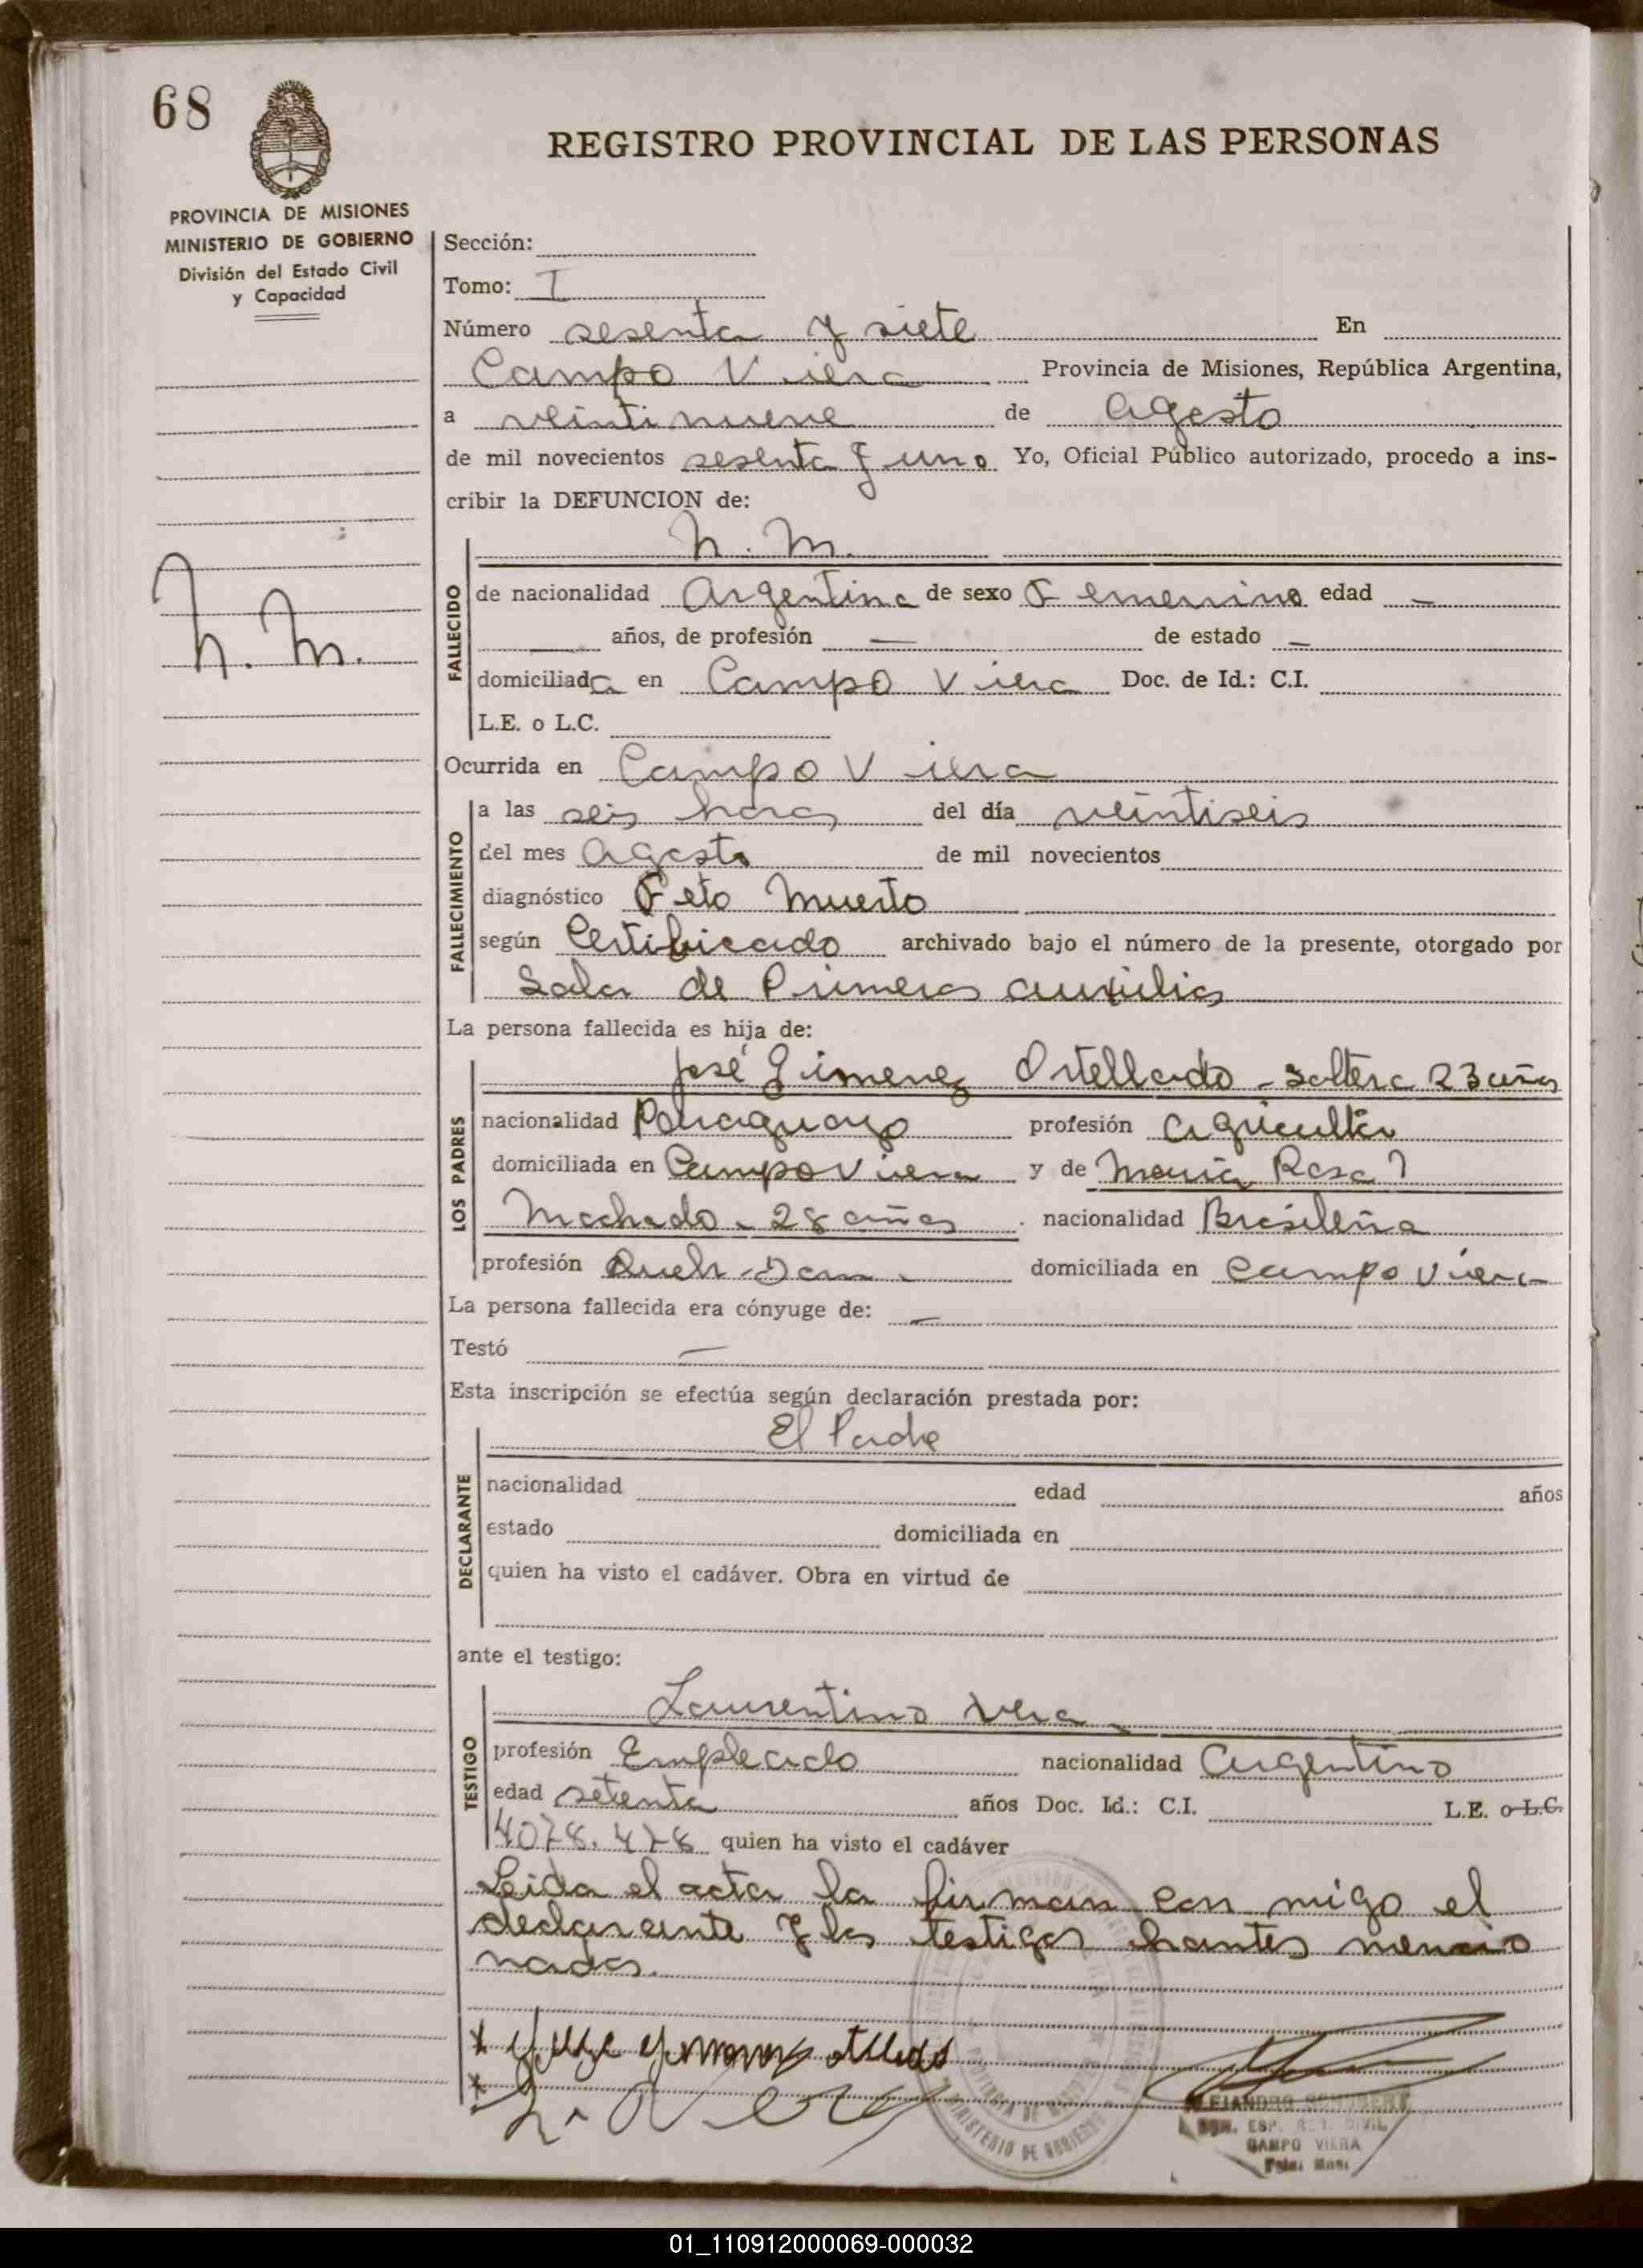 68
REGISTRO PROVINCIAL DE LAS PERSONAS
PROVINCIA DE MISIONES
MINISTERIO DE GOBIERNO
División del Estado Civil
y Capacidad
Sección:
Tomo: I
Número sesenta y siete En
Campo Viera Provincia de Misiones, República Argentina,
a veintinueve de Agosto
de mil novecientos sesenta y uno Yo, Oficial Público autorizado, procedo a ins-
cribir la DEFUNCION de:
N. M.
N. M.
FALLECIDO
de nacionalidad Argentina de sexo Femenino edad —
años, de profesión — de estado —
domiciliada en Campo Viera Doc. de Id.: C.I.
L.E. o L.C.
Ocurrida en Campo Viera
FALLECIMIENTO
a las seis horas del día veintiseis
del mes Agosto de mil novecientos
diagnóstico Feto Muerto
según Certificado archivado bajo el número de la presente, otorgado por
Sala de Primeros auxilios
La persona fallecida es hija de:
LOS PADRES
José Gimenez Ortellado - soltero 23 años
nacionalidad Paraguayo profesión agricultor
domiciliada en Campo Viera y de Maria Rosa
Machado - 28 años nacionalidad Brasileña
profesión Queh. Dom. domiciliada en Campo Viera
La persona fallecida era cónyuge de: —
Testó —
Esta inscripción se efectúa según declaración prestada por:
El Padre
DECLARANTE
nacionalidad edad años
estado domiciliada en
quien ha visto el cadáver. Obra en virtud de
ante el testigo:
TESTIGO
Laurentino Vera
profesión Empleado nacionalidad Argentino
edad setenta años Doc. Id.: C.I. L.E. o L.C.
quien ha visto el cadáver
Leida el acta la firman con migo el
declarante y los testigos hantes mencio
nados.
L. Vera
MINISTERIO DE GOBIERNO
ALEJANDRO
ESP. CIVIL
CAMPO VIERA
01_110912000069-000032